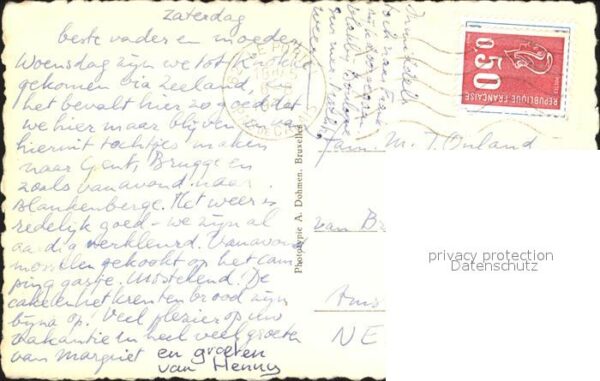 zaterdag
beste vader en moeder
Woensdag zijn we tot Knokke
gekomen via Zeeland, en
het bevalt hier zo goed dat
we hier maar blijven en van
hieruit tochtjes maken
naar Gent, Brugge en
zoals vanavond naar
Blankenberge. Het weer is
redelijk goed - we zijn al
aardig verkleurd. Vanavond
mosselen gekookt op het cam
ping gasje. Uitstekend! De
cake en het krentenbrood zijn
bijna op! Veel plezier op uw
vakantie en heel veel groeten
van Margriet en groeten
van Henny
Inmiddels
toch naar
Phototypie A. Dohmen, Bruxelles
0,50
REPUBLIQUE FRANCAISE
POSTES
Fam. M. T.
van B
Ams
NE
privacy protection
Datenschutz